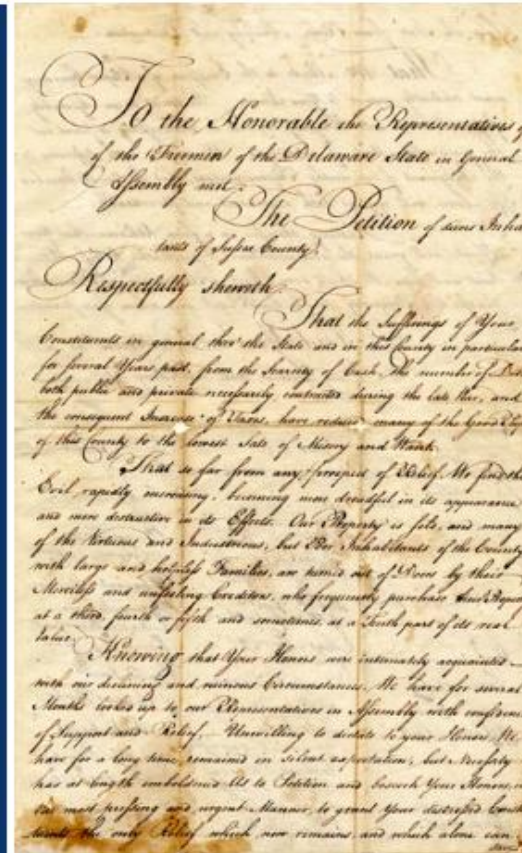 To the Honorable the Representatives
of the Freemen of the Delaware State in General
Assembly met.
The Petition of divers Inha
tants of Sussex County
Respectfully sheweth
That the Sufferings of Your
Constituents in general thro' the State and in this County in particular
for several Years past, from the Scarcity of Cash, the number of
both public and private necessarily contracted during the late War, and
the consequent Increase of Taxes, have reduced many of the Good
of this County to the lowest State of Misery and Want
That so far from any prospect of Relief, We find the
Evil rapidly increasing, becoming more dreadful in its appearance
and more destructive in its Effects. Our Property is sold, and many
of the Virtuous and Industrious, but Poor Inhabitants of the County
with large and helpless Families, are turned out of Doors by their
Merciless and unfeeling Creditors, who frequently purchase their
at a third, fourth or fifth and sometimes at a Tenth part of its real
Value.
Knowing that Your Honors were intimately acquainted
with our declining and ruinous Circumstances, We have for several
Months looked up to our Representatives in Assembly with confidence
of Support and Relief. Unwilling to dictate to your Honors, We
have for a long time, remained in silent expectation, but Necessity
has at length emboldened Us to Petition and beseech Your Honors
most pressing and urgent Manner, to grant Your distressed
the only Relief which now remains, and which alone can